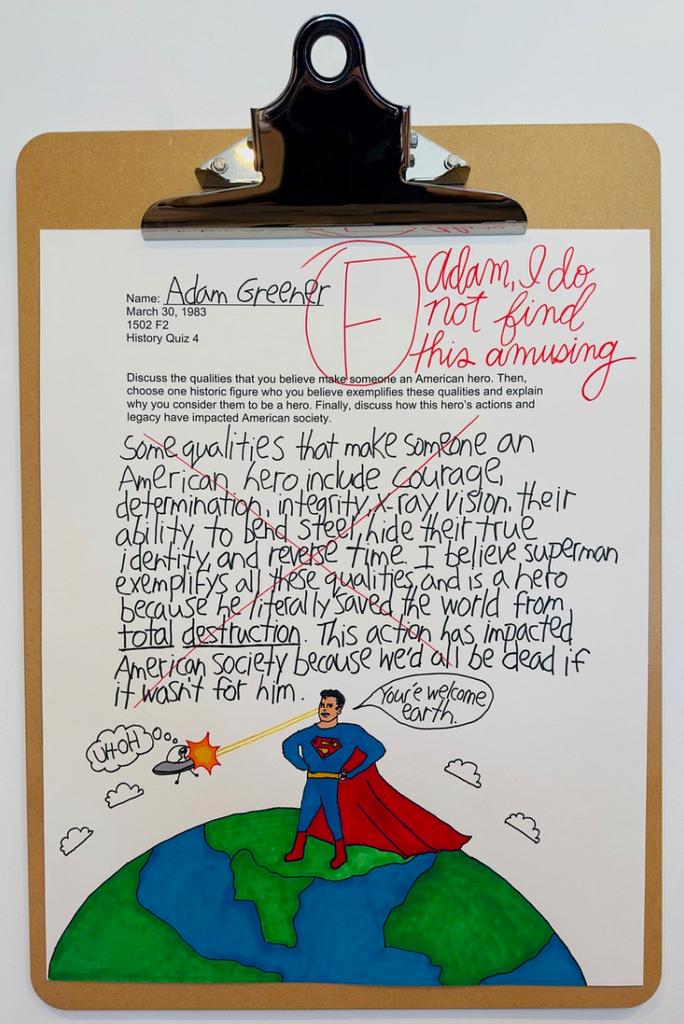 Name: Adam Greener
March 30, 1983
1502 F2
History Quiz 4
F
Adam, I do
not find
this amusing
Discuss the qualities that you believe make someone an American hero. Then,
choose one historic figure who you believe exemplifies these qualities and explain
why you consider them to be a hero. Finally, discuss how this hero's actions and
legacy have impacted American society.
Some qualities that make someone an
American hero include courage,
determination, integrity, x-ray vision, their
ability to bend steel, hide their true
identity, and reverse time. I believe superman
exemplifys all these qualities, and is a hero
because he literally saved the world from
total destruction. This action has impacted
American society because we'd all be dead if
it wasn't for him.
You'e welcome
earth.
UH OH
S